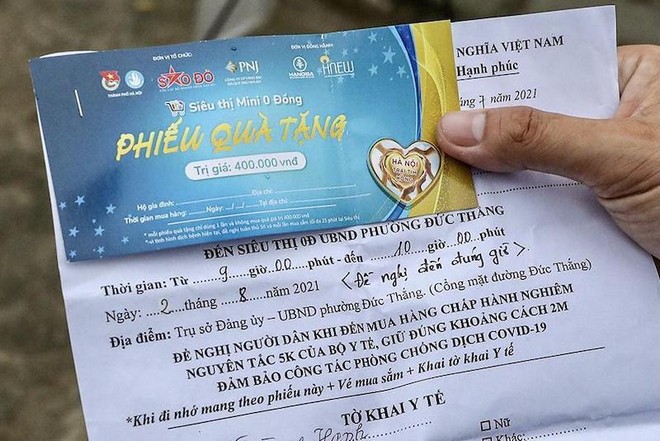 ĐƠN VỊ TỔ CHỨC
ĐƠN VỊ ĐỒNG HÀNH
THÀNH PHỐ HÀ NỘI
SAO ĐỎ
PNJ
HANOBA
HNEW
Siêu thị Mini 0 Đồng
PHIẾU QUÀ TẶNG
Trị giá: 400.000 vnđ
HÀ NỘI
TRÁI TIM
HỒNG
Hộ gia đình: Địa chỉ:
Thời gian mua hàng: Ngày: Tại địa chỉ:
*mỗi phiếu quà tặng chỉ dùng 1 lần và không mua quá trị giá 400.000 vnđ
NGHĨA VIỆT NAM
Hạnh phúc
tháng 7 năm 2021
ĐẾN SIÊU THỊ 0Đ UBND PHƯỜNG ĐỨC THẮNG
Thời gian: Từ 9 giờ 00 phút - đến 10 giờ 00 phút
Ngày: 2 tháng 8 năm 2021 <Đề nghị đến đúng giờ>
Địa điểm: Trụ sở Đảng ủy – UBND phường Đức Thắng. (Cổng mặt đường Đức Thắng)
ĐỀ NGHỊ NGƯỜI DÂN KHI ĐẾN MUA HÀNG CHẤP HÀNH NGHIÊM
NGUYÊN TẮC 5K CỦA BỘ Y TẾ, GIỮ ĐÚNG KHOẢNG CÁCH 2M
ĐẢM BẢO CÔNG TÁC PHÒNG CHỐNG DỊCH COVID-19
*Khi đi nhớ mang theo phiếu này + Vé mua sắm + Khai tờ khai Y tế
TỜ KHAI Y TẾ
Nữ
Khác:
Hạnh